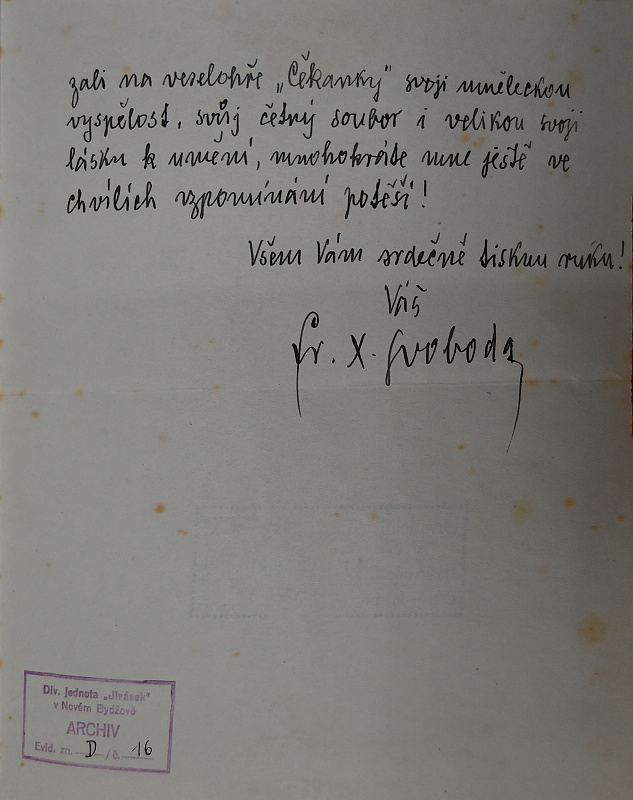 zali na veselohře „Čekanky" svoji uměleckou
vyspělost, svůj četný soubor i velikou svoji
lásku k umění, mnohokráte mne ještě ve
chvílích vzpomínání potěší!
Všem Vám srdečně tisknu ruku!
Váš
Fr. X. Svoboda
Div. jednota „Jirásek"
v Novém Bydžově
ARCHIV
Evid. zn. D / č. 16